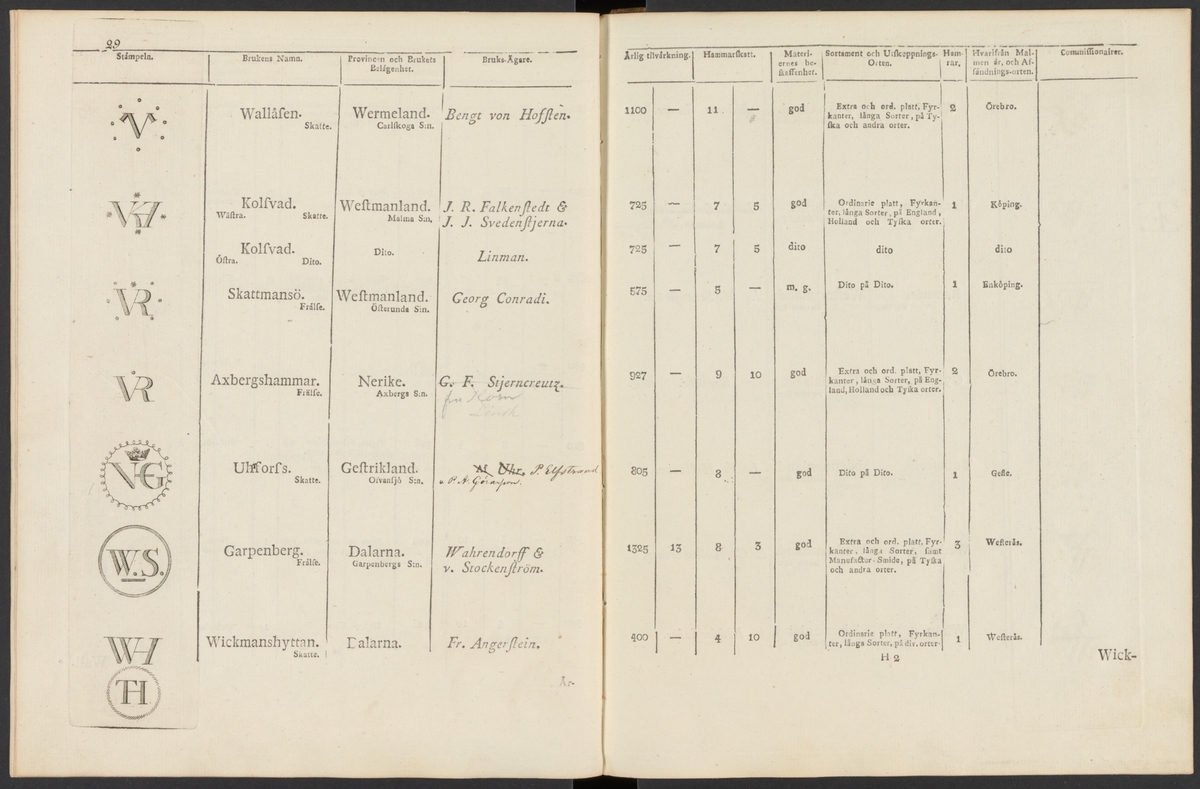 29
Stämpeln. Brukens Namn. Provincen och Brukets Belägenhet. Bruks-Ägare.
V Wallåſen. Skatte. Wermeland. Carlſkoga S:n. Bengt von Hofſten.
VH Kolſvad. Wäſtra. Skatte. Weſtmanland. Malma S:n. J. R. Falkenſtedt & J. J. Svedenſtjerna.
Kolſvad. Öſtra. Dito. Dito. Linman.
VR Skattmansö. Frälſe. Weſtmanland. Öſterunda S:n. Georg Conradi.
VR Axbergshammar. Frälſe. Nerike. Axbergs S:n. G. F. Stjerncreutz.
VG Uhrforſs. Skatte. Geſtrikland. Ofvanſjö S:n. Af Uhr. P. Elfstrand
o P. A. Göransson.
W.S. Garpenberg. Frälſe. Dalarna. Garpenbergs S:n. Wahrendorff & v. Stockenſtröm.
WH Wickmanshyttan. Skatte. Dalarna. Fr. Angerſtein.
TH
Årlig tilvärkning. Hammarſkatt. Materiernes beſkaffenhet. Sortament och Utſkeppnings-Orten. Hamrar. Hvarifrån Malmen är, och Afſändnings-orten. Commiſſionairer.
1100 — 11 — god Extra och ord. platt, Fyrkanter, långa Sorter, på Tyſka och andra orter. 2 Örebro.
725 — 7 5 god Ordinarie platt, Fyrkanter, långa Sorter, på England, Holland och Tyſka orter. 1 Köping.
725 — 7 5 dito dito dito
575 — 5 — m. g. Dito på Dito. 1 Enköping.
927 — 9 10 god Extra och ord. platt, Fyrkanter, långa Sorter, på England, Holland och Tyſka orter. 2 Örebro.
805 — 8 — god Dito på Dito. 1 Gefle.
1325 13 8 3 god Extra och ord. platt, Fyrkanter, långa Sorter, ſamt Manufactur-Smide, på Tyſka och andra orter. 3 Weſterås.
400 — 4 10 god Ordinarie platt, Fyrkanter, långa Sorter, på div. orter 1 Weſterås.
H 2
Wick-